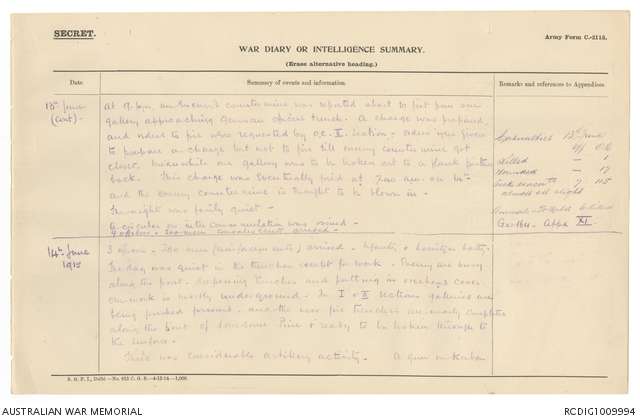 SECRET.
Army Form C.-2118.
WAR DIARY OR INTELLIGENCE SUMMARY.
(Erase alternative heading.)
Date
Summary of events and information.
Remarks and references to Appendices
13th June
(cont)
At 9.6pm an enemy's countermine was reported about to just pass our
gallery approaching German officers trench. A charge was prepared,
and orders to fire were requested by O.C. II Section - orders were given
to prepare a charge but not to fire till enemy countermine got
close. Meanwhile our gallery was to be broken out to a flank further
back. This charge was eventually fired at 7.20 am on 14th
and the enemy countermine is thought to be blown in.
The night was fairly quiet -
A circular on intercommunication was issued -
Casualties 13th June
Off O.R.
Killed — 1
Wounded — 17
Sick
almost all slight
Appx XI
14th June
1915
3 officers - 200 men (reinforcements) arrived - 1 Howitzer batty.
The day was quiet in the trenches except for work - Enemy are busy
along the front - deepening trenches and putting in overhead cover.
Our work is mostly underground - In I & II sections galleries are
being pushed forward, and the new fire trenches are nearly complete
along the front of Lonesome Pine & ready to be broken through to
the surface.
There was considerable artillery activity. A gun on
S. G. P. I., Delhi—No. 813 C. G. S.—4-12-14—1,000.
AUSTRALIAN WAR MEMORIAL
RCDIG1009994